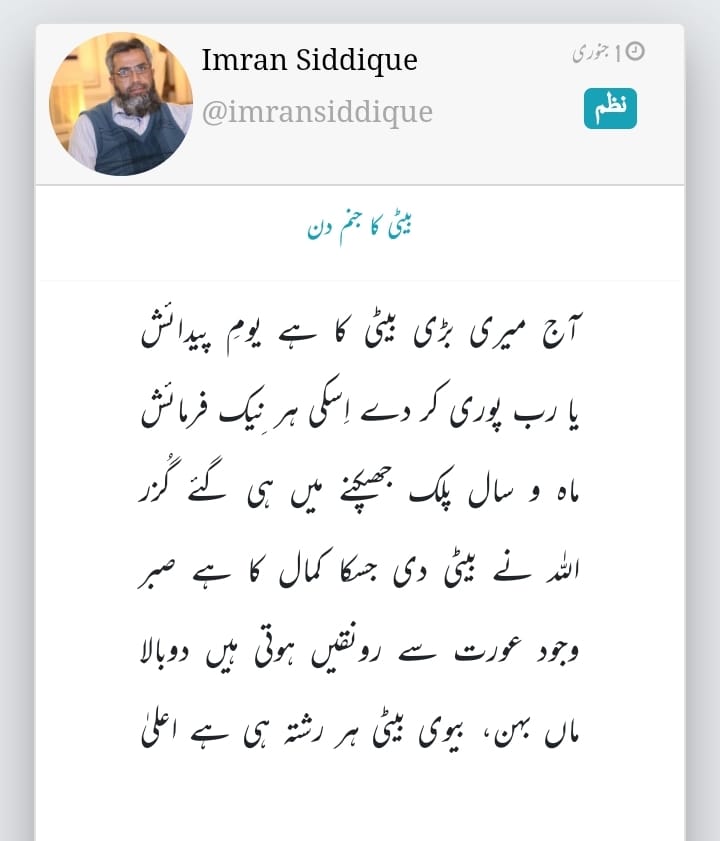 Imran Siddique
@imransiddique
1 جنوری
نظم
بیٹی کا جنم دن
آج میری بڑی بیٹی کا ہے یومِ پیدائش
یا رب پوری کر دے اِسکی ہر نِیک فرمائش
ماہ و سال پلک جھپکنے میں ہی گئے گُزر
اللہ نے بیٹی دی جسکا کمال کا ہے صبر
وجود عورت سے رونقیں ہوتی ہیں دوبالا
ماں بہن، بیوی بیٹی ہر رشتہ ہی ہے اعلیٰ